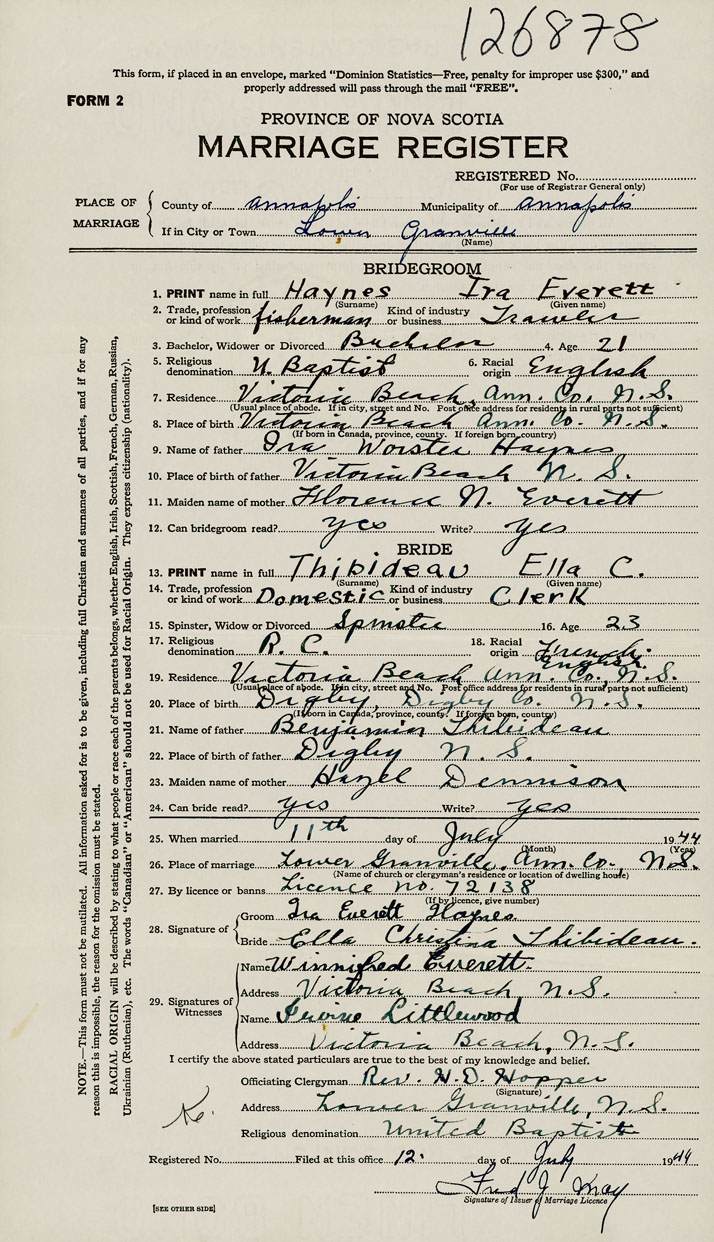 126878
This form, if placed in an envelope, marked “Dominion Statistics—Free, penalty for improper use $300,” and
properly addressed will pass through the mail “FREE”.
FORM 2
PROVINCE OF NOVA SCOTIA
MARRIAGE REGISTER
REGISTERED No.
(For use of Registrar General only)
PLACE OF MARRIAGE
County of Annapolis Municipality of Annapolis
If in City or Town Lower Granville
(Name)
BRIDEGROOM
1. PRINT name in full Haynes Ira Everett
(Surname) (Given name)
2. Trade, profession or kind of work fisherman Kind of industry or business Trawler
3. Bachelor, Widower or Divorced Bachelor 4. Age 21
5. Religious denomination U. Baptist 6. Racial origin English
7. Residence Victoria Beach, Ann. Co. N.S.
(Usual place of abode. If in city, street and No. Post office address for residents in rural parts not sufficient)
8. Place of birth Victoria Beach Ann. Co. N.S.
(If born in Canada, province, county. If foreign born, country)
9. Name of father Ira Worster Haynes
10. Place of birth of father Victoria Beach N.S.
11. Maiden name of mother Florence N. Everett
12. Can bridegroom read? yes Write? yes
BRIDE
13. PRINT name in full Thibideau Ella C.
(Surname) (Given name)
14. Trade, profession or kind of work Domestic Kind of industry or business Clerk
15. Spinster, Widow or Divorced Spinster 16. Age 23
17. Religious denomination R. C. 18. Racial origin French. English.
19. Residence Victoria Beach Ann. Co., N.S.
(Usual place of abode. If in city, street and No. Post office address for residents in rural parts not sufficient)
20. Place of birth Digby, Digby Co. N.S.
(If born in Canada, province, county. If foreign born, country)
21. Name of father Benjamin Thibideau
22. Place of birth of father Digby N.S.
23. Maiden name of mother Hazel Dennison
24. Can bride read? yes Write? yes
25. When married 11th day of July 1944
(Month) (Year)
26. Place of marriage Lower Granville, Ann. Co., N.S.
(Name of church or clergyman's residence or location of dwelling house)
27. By licence or banns Licence no. 72138
(If by licence, give number)
28. Signature of
Groom Ira Everett Haynes
Bride Ella Christina Thibideau.
29. Signatures of Witnesses
Name Winnifred Everett.
Address Victoria Beach N.S.
Name Irvine Littlewood
Address Victoria Beach, N.S.
I certify the above stated particulars are true to the best of my knowledge and belief.
Officiating Clergyman Rev. H. D. Hopper
(Signature)
Address Lower Granville, N.S.
Religious denomination United Baptist
Registered No. Filed at this office 12. day of July 1944
Fred J. May
Signature of Issuer of Marriage Licence
[SEE OTHER SIDE]
NOTE.—This form must not be mutilated. All information asked for is to be given, including full Christian and surnames of all parties, and if for any
reason this is impossible, the reason for the omission must be stated.
RACIAL ORIGIN will be described by stating to what people or race each of the parents belongs, whether English, Irish, Scottish, French, German, Russian,
Ukrainian (Ruthenian), etc. The words “Canadian” or “American” should not be used for Racial Origin. They express citizenship (nationality).